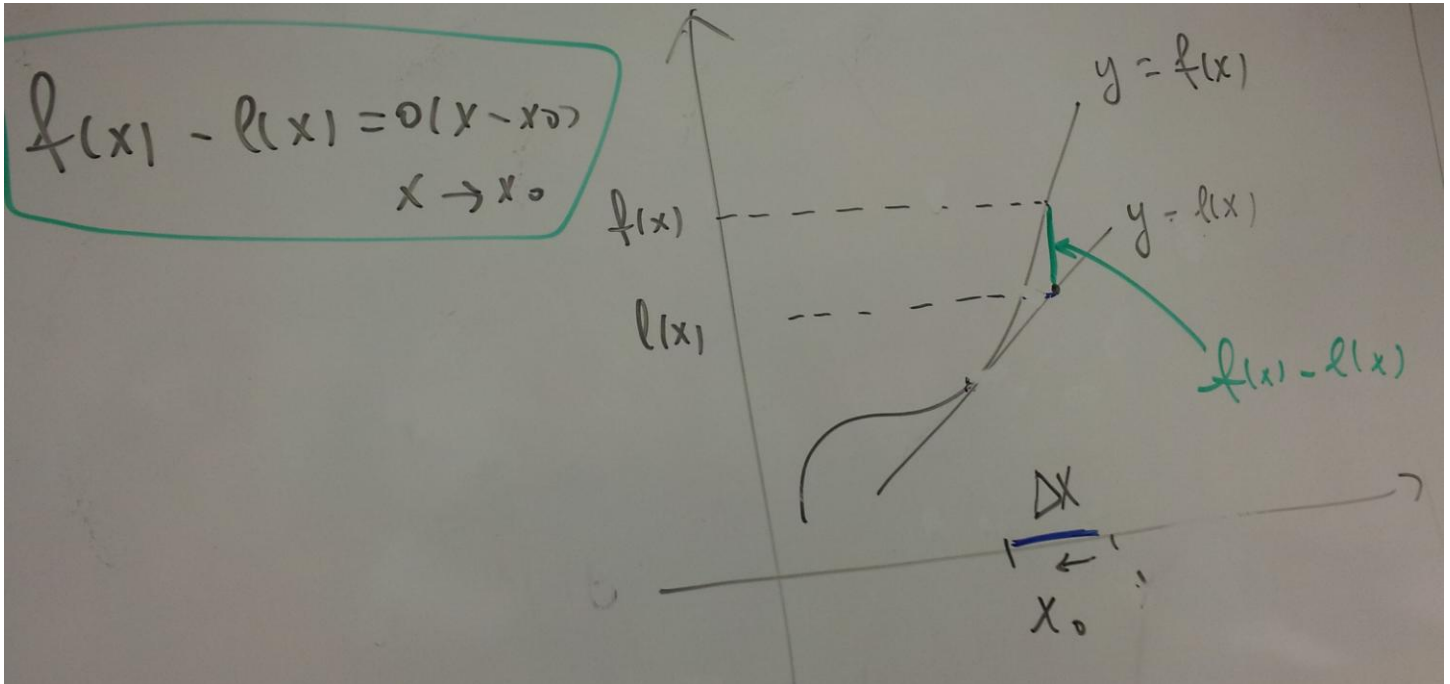 f(x) - l(x) = o(x-x0)
x → x0
y = f(x)
f(x)
y = l(x)
l(x)
f(x) - l(x)
Δx
←
x0